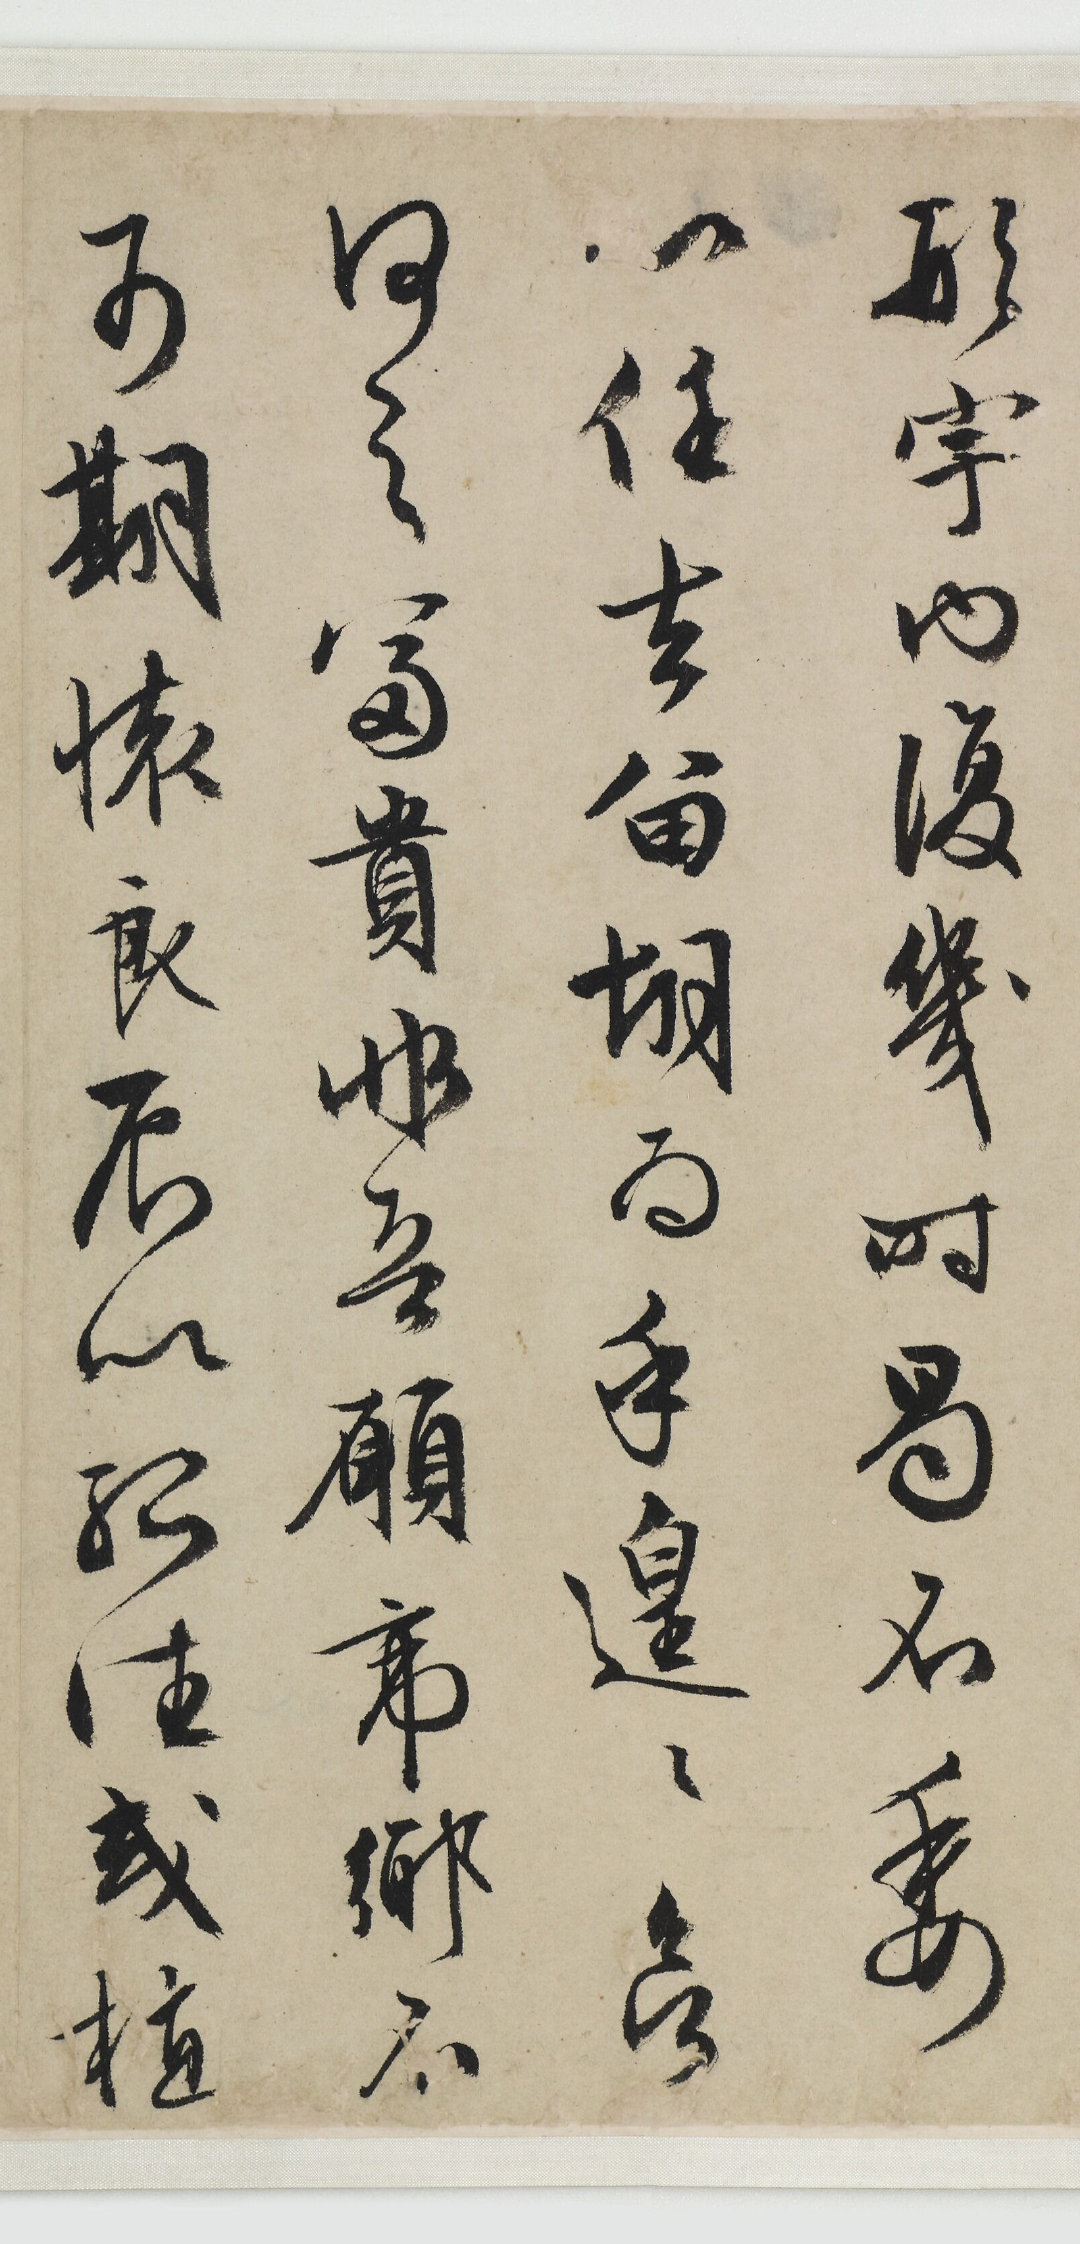 形宇內復幾時曷不委
心任去留胡為乎遑〻欲
何之富貴非吾願帝鄉不
可期懷良辰以孤往或植